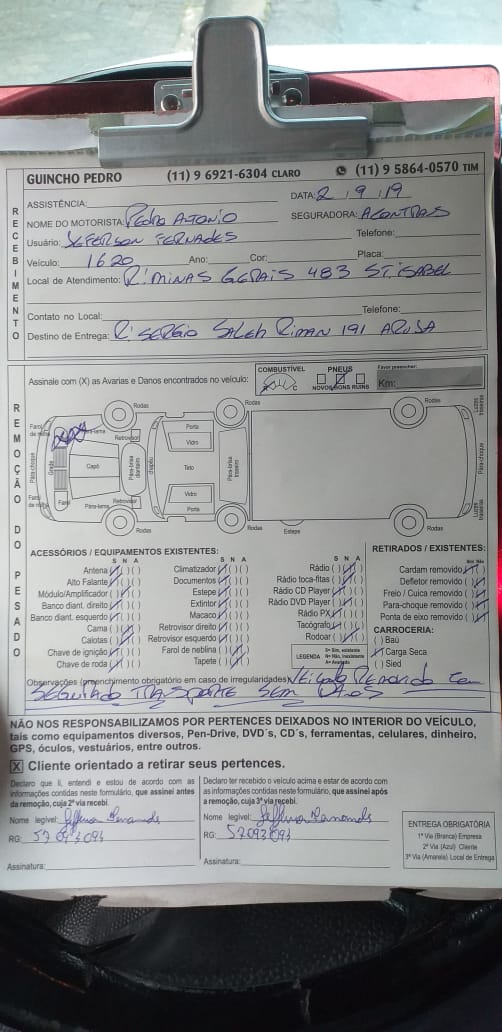 GUINCHO PEDRO (11) 9 6921-6304 CLARO (11) 9 5864-0570 TIM
RECEBIMENTO
ASSISTÊNCIA: DATA: 2 / 9 / 19
NOME DO MOTORISTA: Pedro Antonio SEGURADORA:
Usuário: Jeferson Fernades Telefone:
Veículo: 1620 Ano: Cor: Placa:
Local de Atendimento: R: MINAS GERAIS 483 ST. ISABEL
Contato no Local: Telefone:
Destino de Entrega: R: SERGIO SALEH RIMAN 191 ARUSA
REMOÇÃO DO PESADO
Assinale com (X) as Avarias e Danos encontrados no veículo:
COMBUSTÍVEL
C
PNEUS
NOVOS BONS RUINS
Favor preencher:
Km:
Rodas Rodas Rodas
Farol de milha
Para-lama
Retrovisor
Porta
Vidro
Luzes traseira
Para-choque
Grade
Capô
Para-brisa dianteiro
chapéu
Teto
Para-brisa traseiro
Para-choque
Farol de milha
Farol
Para-lama
Retrovisor
Vidro
Porta
Luzes traseira
Rodas Rodas Estepe Rodas
ACESSÓRIOS / EQUIPAMENTOS EXISTENTES:
S N A
Antena
Alto Falante
Módulo/Amplificador
Banco diant. direito
Banco diant. esquerdo
Cama
Calotas
Chave de ignição
Chave de roda
S N A
Climatizador
Documentos
Estepe
Extintor
Macaco
Retrovisor direito
Retrovisor esquerdo
Farol de neblina
Tapete
S N A
Rádio
Rádio toca-fitas
Rádio CD Player
Rádio DVD Player
Rádio PX
Tacógrafo
Rodoar
LEGENDA
S= Sim, existente
N= Não, inexistente
A= Avariado
RETIRADOS / EXISTENTES:
Sim Não
Cardam removido
Defletor removido
Freio / Cuica removido
Para-choque removido
Ponta de eixo removido
CARROCERIA:
( ) Baú
Carga Seca
( ) Sied
Observações (preenchimento obrigatório em caso de irregularidades) Veiculo Removido Com
SEGUINDO TRASPORTE SEM DANOS
NÃO NOS RESPONSABILIZAMOS POR PERTENCES DEIXADOS NO INTERIOR DO VEÍCULO,
tais como equipamentos diversos, Pen-Drive, DVD´s, CD´s, ferramentas, celulares, dinheiro,
GPS, óculos, vestuários, entre outros.
X Cliente orientado a retirar seus pertences.
Declaro que li, entendi e estou de acordo com as
informações contidas neste formulário, que assinei antes
da remoção, cuja 2ª via recebi.
Nome legível: Jefferson Fernands
RG: 57093093
Assinatura:
Declaro ter recebido o veículo acima e estar de acordo
com as informações contidas neste formulário, que assinei após
a remoção, cuja 3ª via recebi.
Nome legível: Jefferson Fernands
RG: 57093093
Assinatura:
ENTREGA OBRIGATÓRIA
1ª Via (Branca) Empresa
2ª Via (Azul) Cliente
3ª Via (Amarela) Local de Entrega